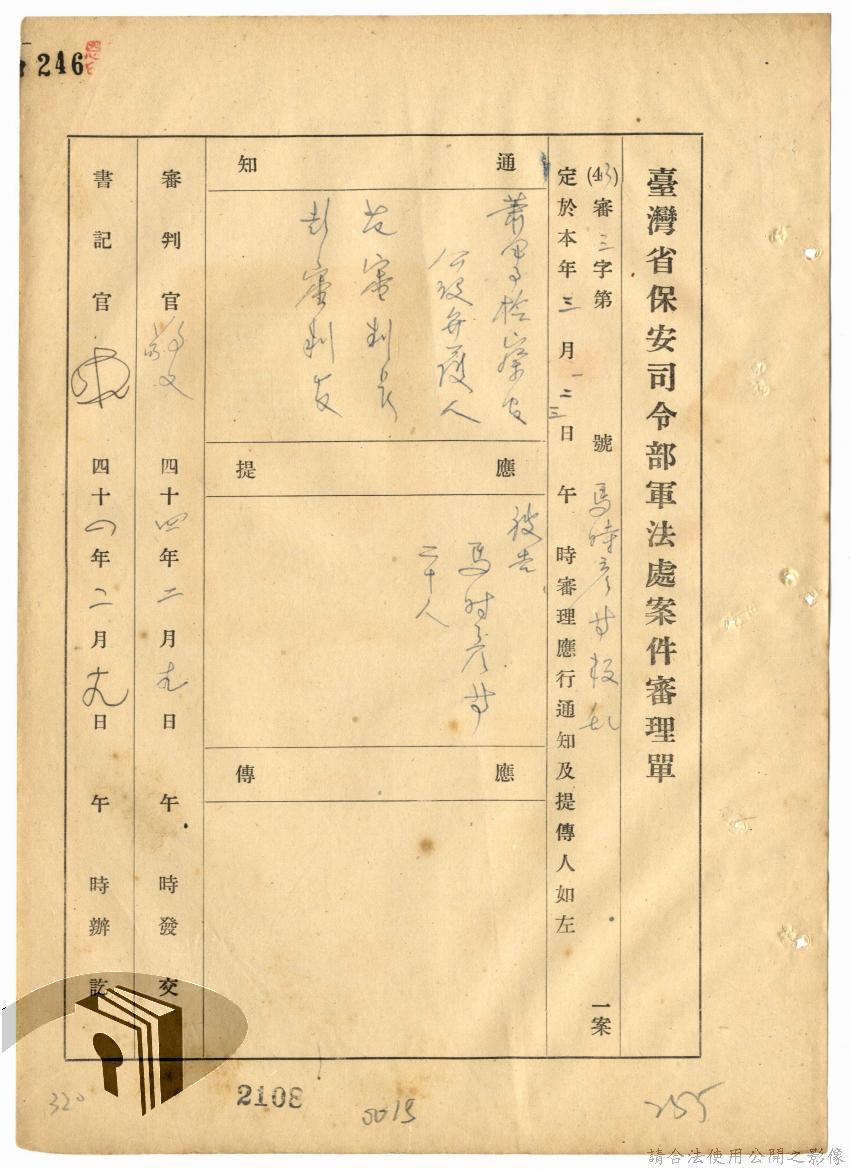 246
臺灣省保安司令部軍法處案件審理單
(43)審三字第 號馬時彥等叛亂一案
定於本年三月 日 午 時審理應行通知及提傳人如左
通知
蕭軍事檢察官
公設辯護人
審判長
彭審判官
應提
被告
馬時彥等
二十人
應傳
審判官 四十四年二月九日 午 時發交
書記官 四十四年二月 日 午 時辦訖
320
2108
0015
255
請合法使用公開之影像